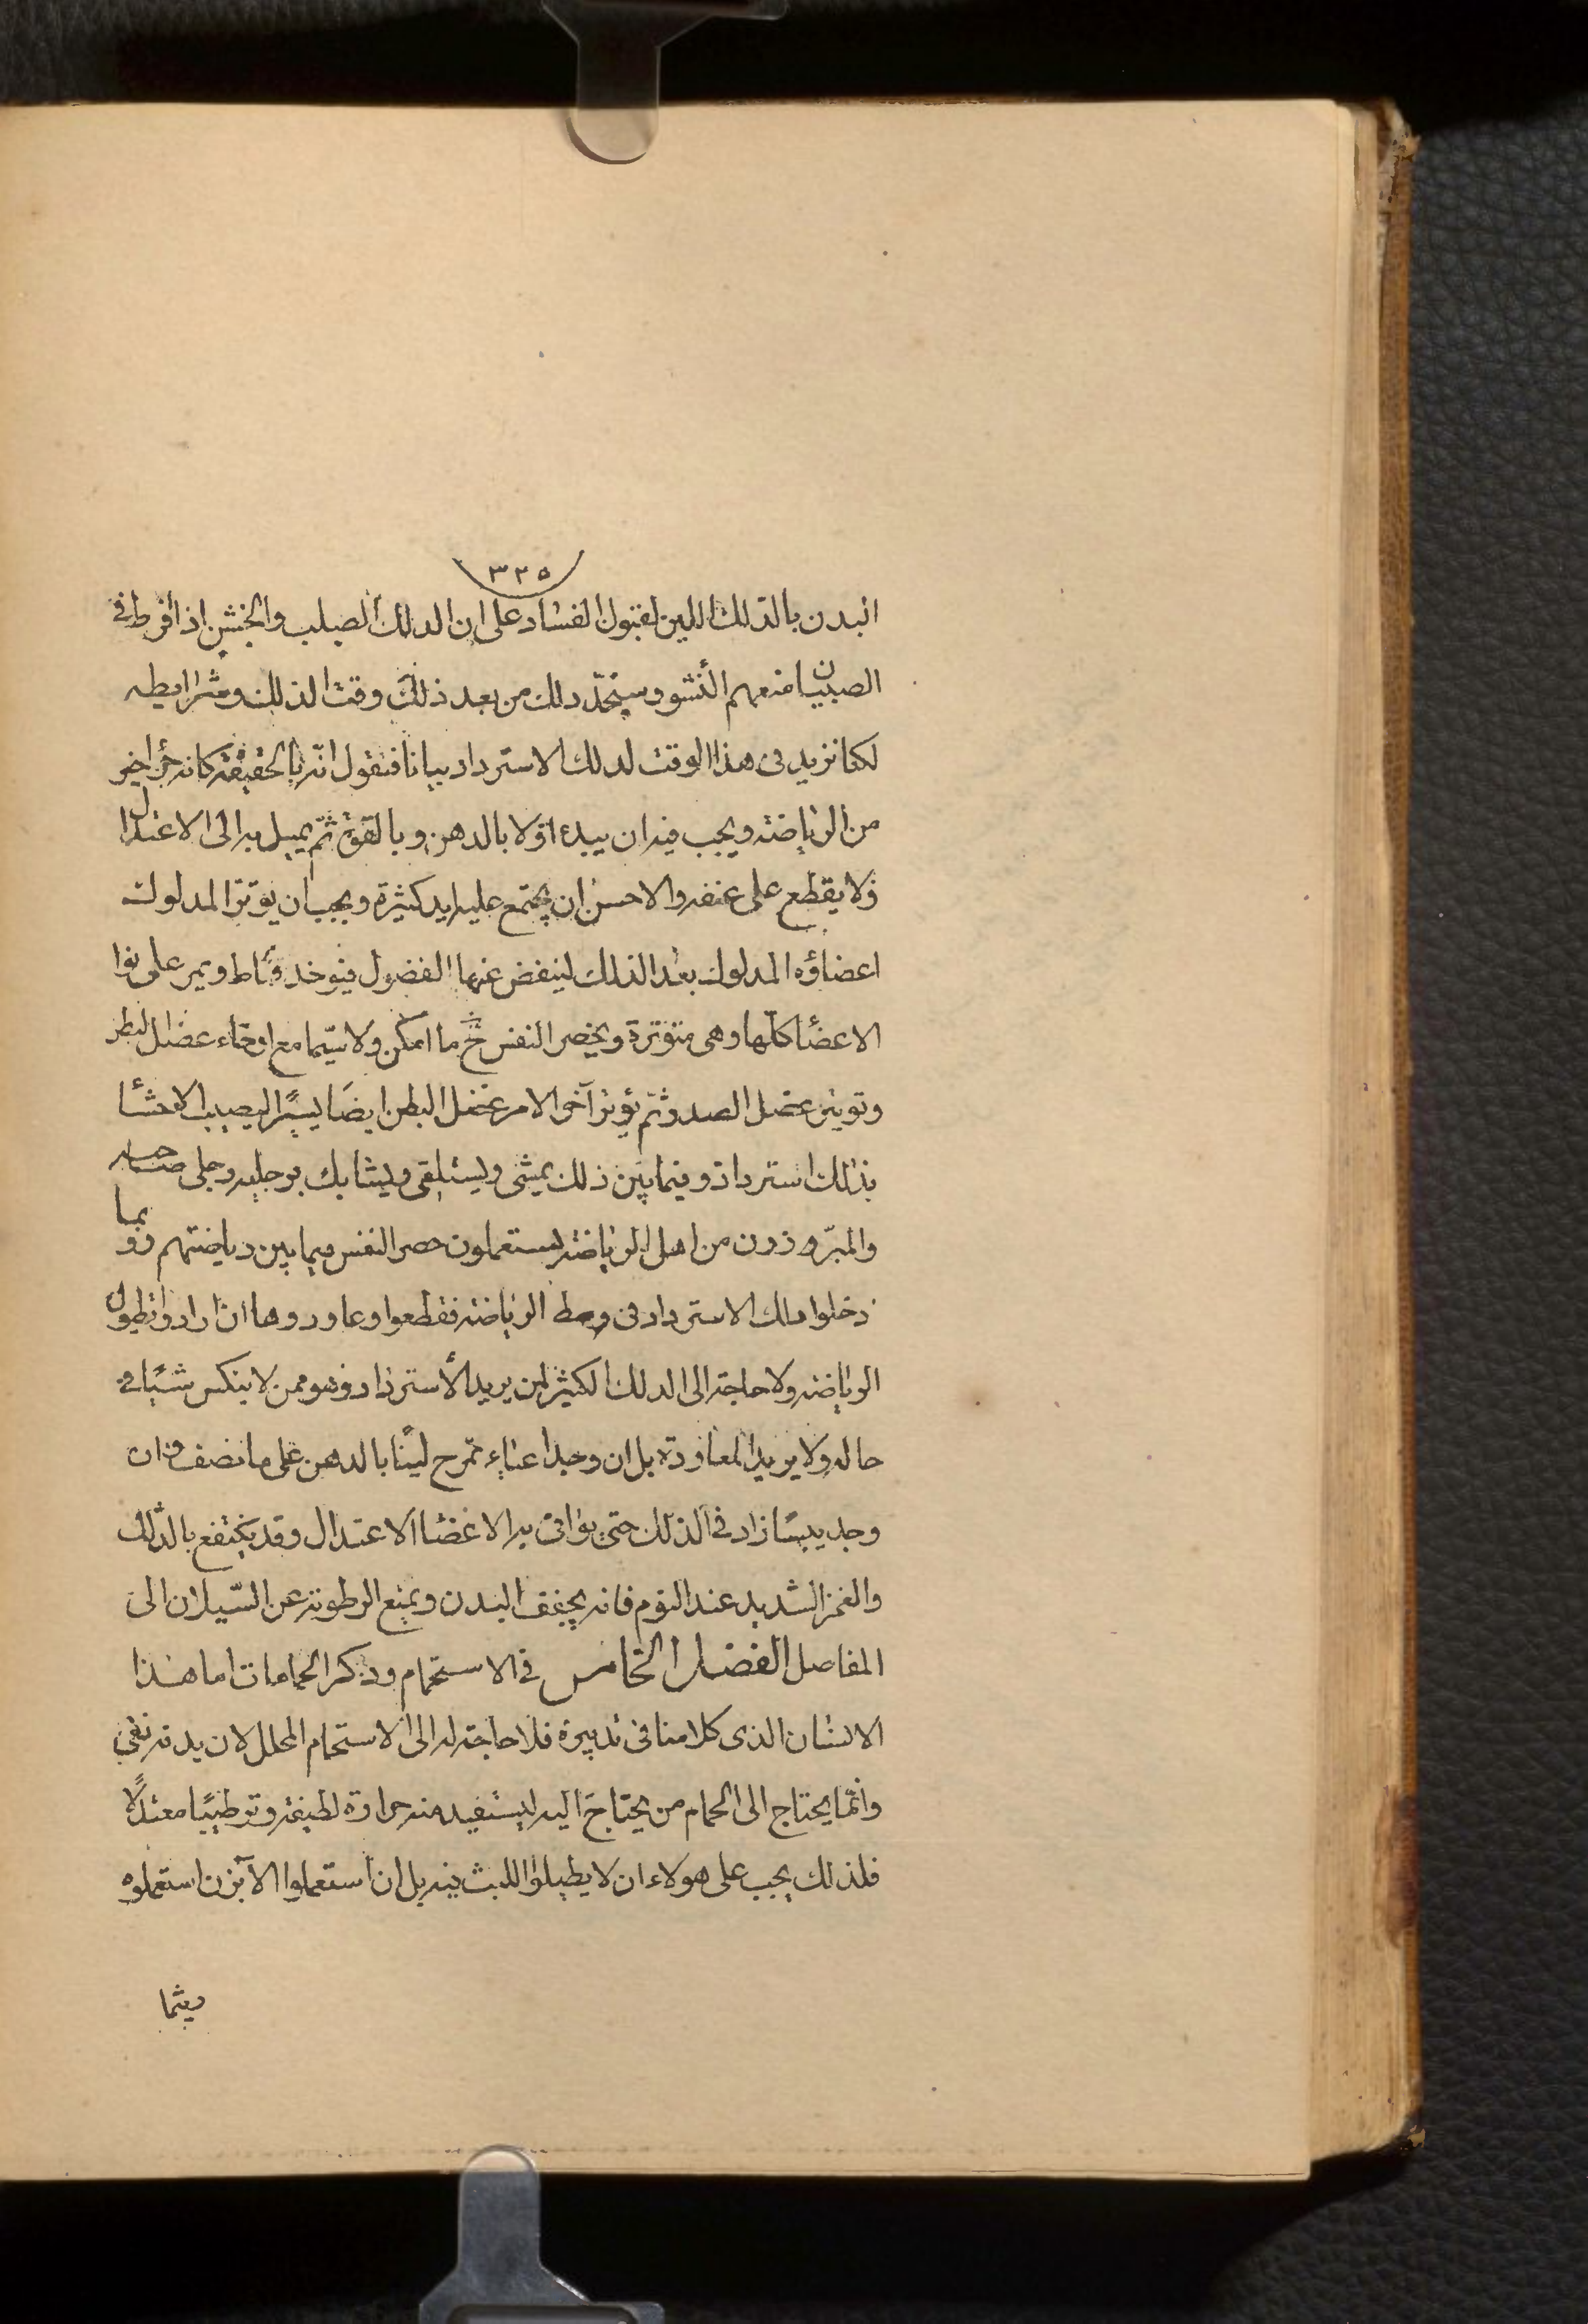 ٣٢٥
البدن بالدلك اللين لقبول الفساد على ان الدلك الصلب والخشن اذا افرط فى
الصبيان منعهم النشو وستجد ذلك من بعد ذلك وقت الدلك وشرايطه
لكنا نزيد فى هذا الوقت لدلك الاسترداد بيانا فنقول انه بالحقيقة كانه جزء اخير
من الرياضة ويجب فيه ان يبدء اولا بالدهن وبالقوة ثم يميل به الى الاعتدال
فلا يقطع على عنفه والاحسن ان يجتمع عليه ايد كثيرة ويجب ان يوتر المدلوك
اعضاؤه المدلوك بعد الدلك لينفض عنها الفضول فيوخذ قماط ويمر على نوا
الاعضا كلها وهى متوترة ويحصر النفس ح ما امكن ولا سيما مع ارخاء عضل البطن
وتوتير عضل الصدر ثم يؤتر آخر الامر عضل البطن ايضا يسيرا ليصيب الاحشا
بذلك استرداد وفيما بين ذلك يمشى ويستلقى ويشابك برجليه رجلى صاحبه
والمبرزون من اهل الرياضة يستعملون حصر النفس فيما بين رياضتهم وربما
دخلوا دلك الاسترداد فى وسط الرياضة فقطعوا وعاودوها ان ارادوا تطويل
الرياضة ولا حاجة الى الدلك الكثير لمن يريد الاسترداد وهو ممن لا ينكس شيئا فى
حاله ولا يريد المعاودة بل ان وجد اعياء تمرح لينا بالدهن على ما نصف وان
وجد يبسا زاد فى الدلك حتى يوافى به الاعضا الاعتدال وقد ينتفع بالدلك
والغمز الشديد عند النوم فانه يجفف البدن ويمنع الرطوبة عن السيلان الى
المفاصل الفصل الخامس فى الاستحمام وذكر الحمامات اما هذا
الانسان الذى كلامنا فى تدبيره فلا حاجة له الى الاستحمام المحلل لان بدنه نقى
وانما يحتاج الى الحمام من يحتاج اليه ليستفيد منه حرارة لطيفة وترطيبا معتدلا
فلذلك يجب على هولاء ان لا يطيلوا اللبث فيه بل ان استعملوا الآبزن استعملوه
ريثما